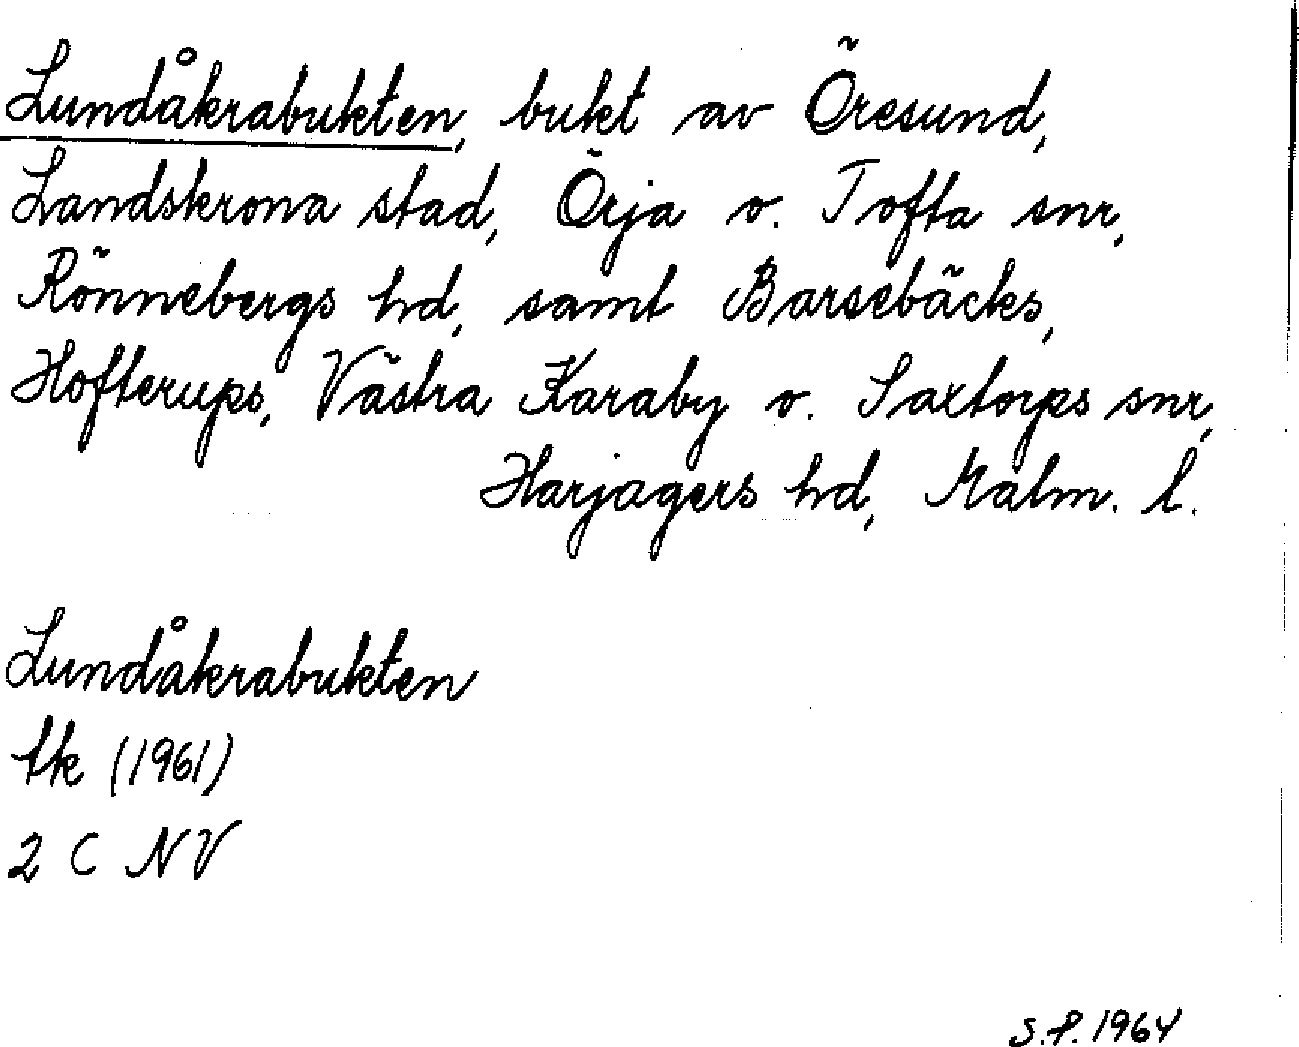 Lundåkrabukten, bukt av Öresund,
Landskrona stad, Örja o. Tofta snr,
Rönnebergs hd, samt Barsebäcks,
Hofterups, Västra Karaby o. Saxtorps snr,
Harjagers hd, Malm. l.
Lundåkrabukten
tk (1961)
2 C NV
S.P. 1964